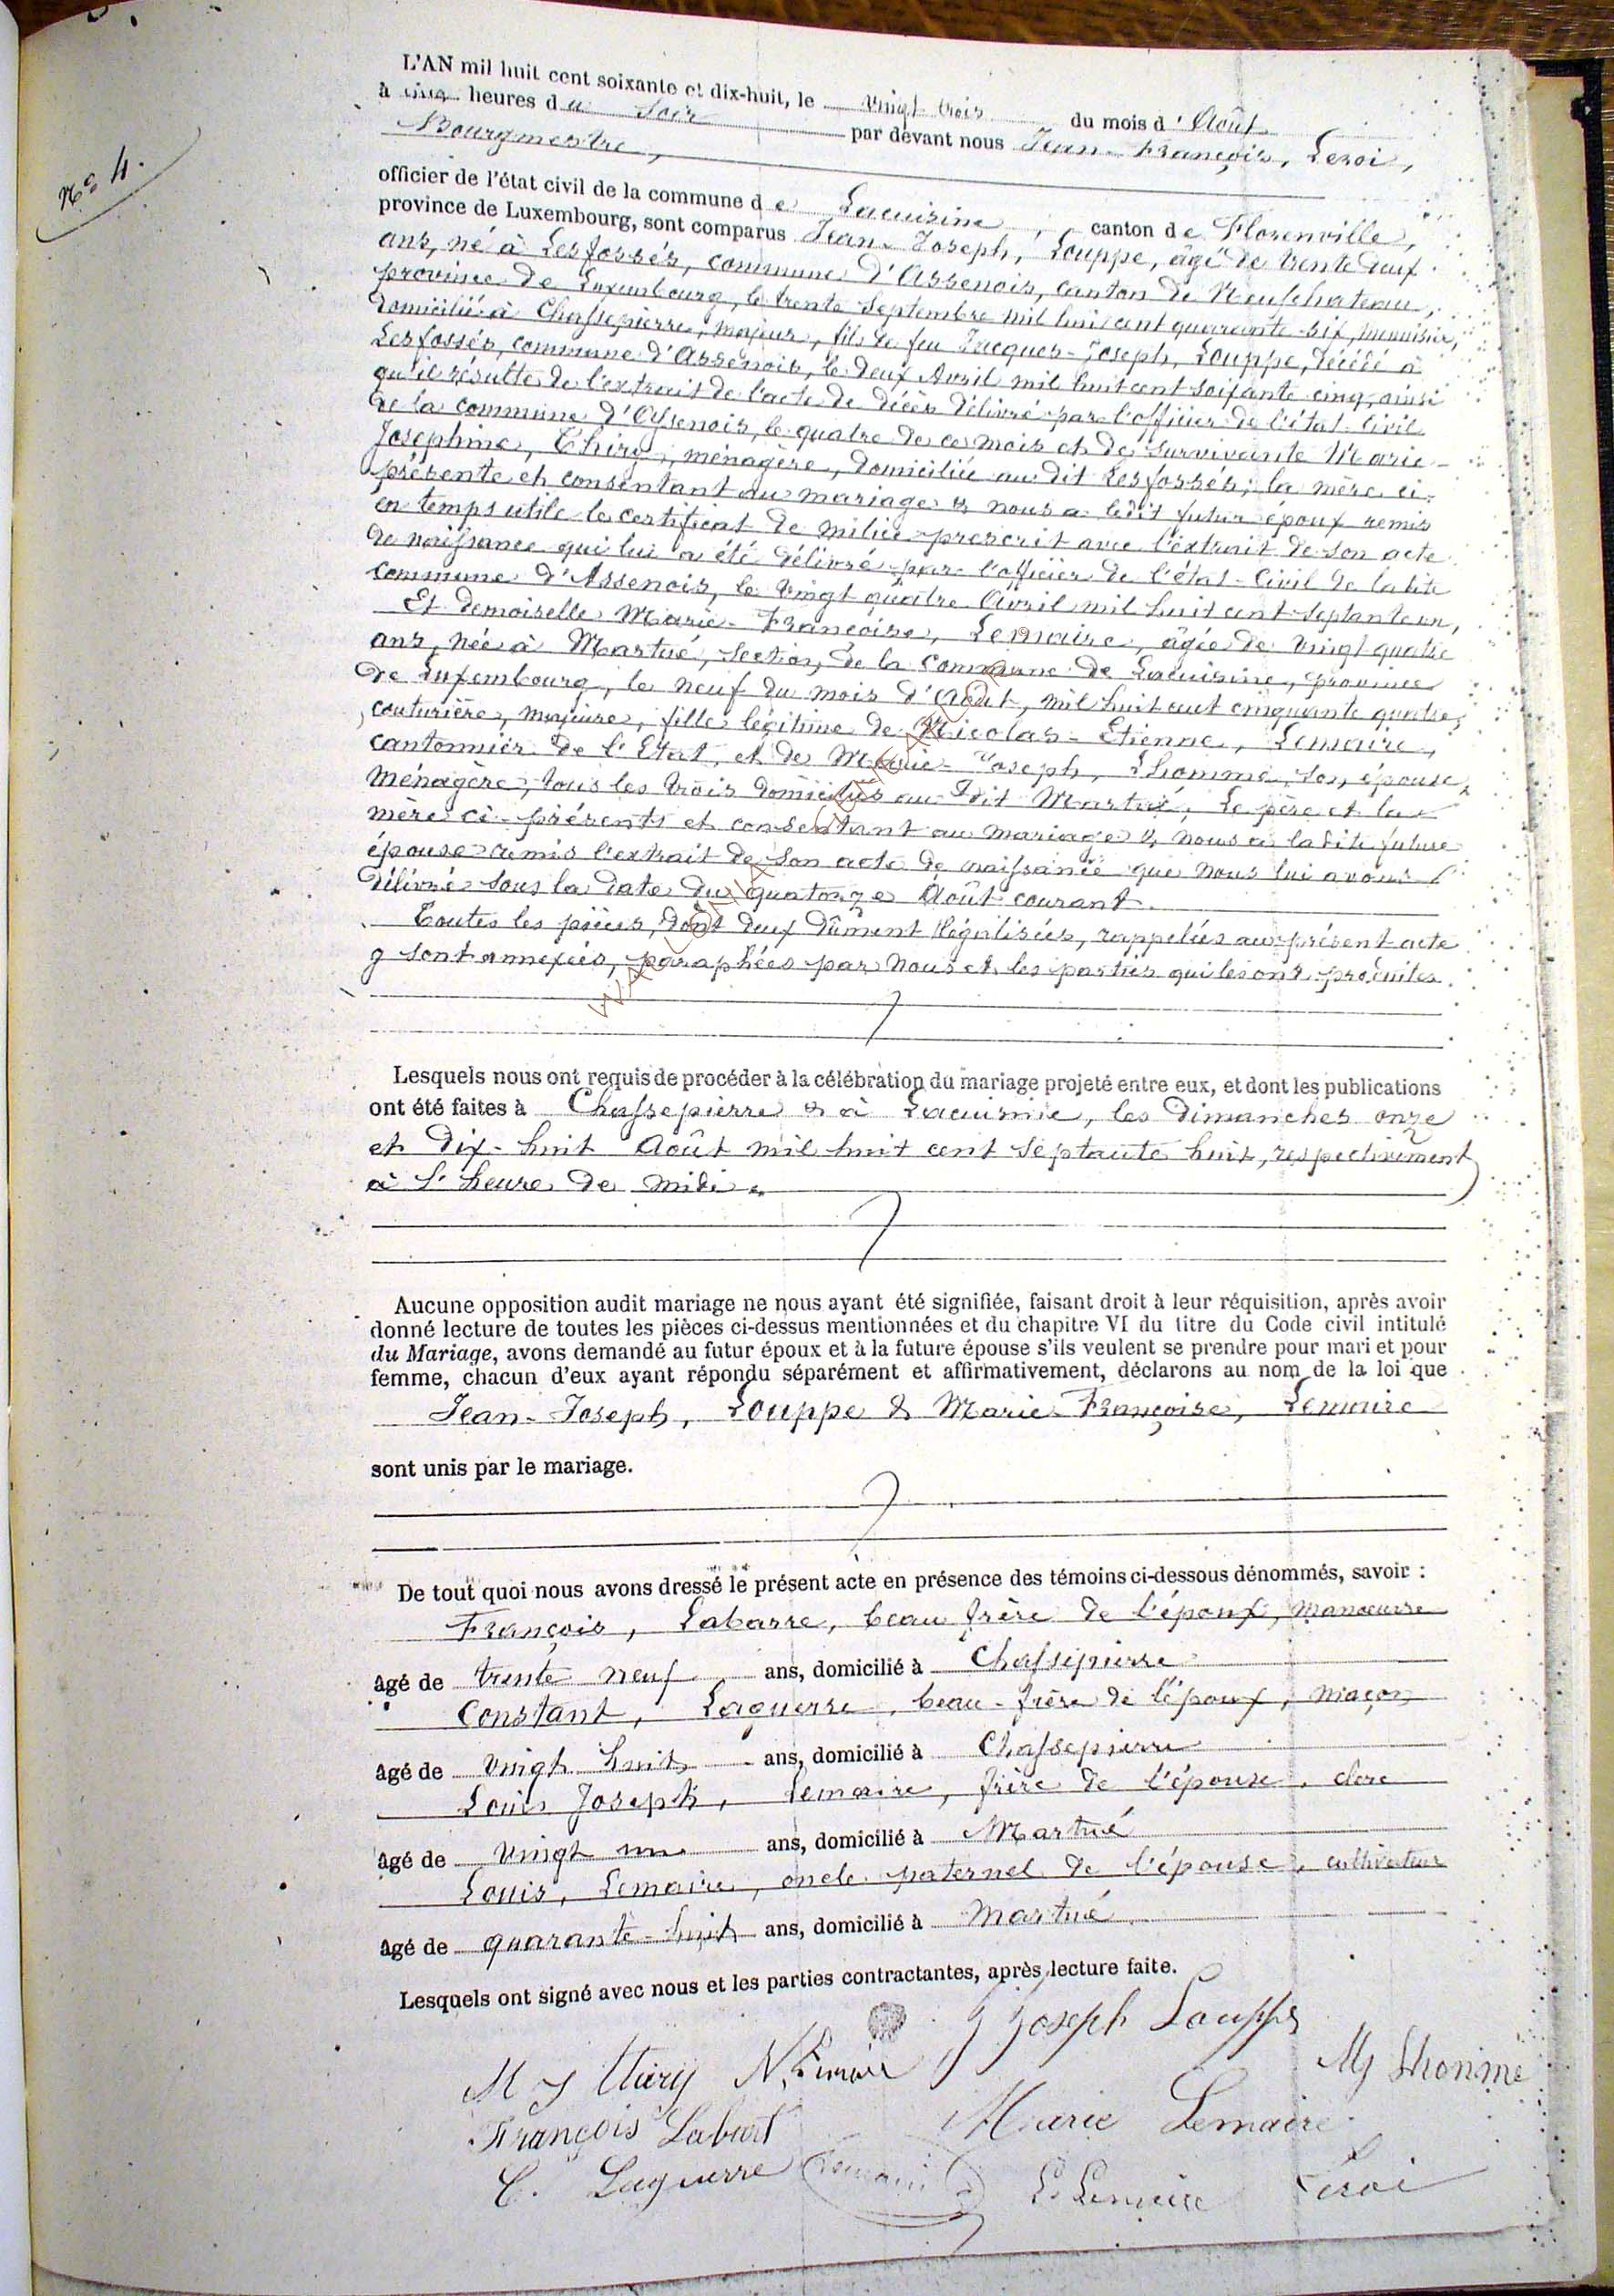 No 4.
L'AN mil huit cent soixante et dix-huit, le vingt trois du mois d'Août
à cinq heures du soir par devant nous Jean-François, Leroi,
Bourgmestre,
officier de l'état civil de la commune de Lacuisine, canton de Florenville,
province de Luxembourg, sont comparus Jean-Joseph, Louppe, âgé de trente deux
ans, né à Lesfossés, commune d'Assenois, canton de Neufchateau,
province de Luxembourg, le trente Septembre mil huit cent quarante-six, menuisier,
domicilié à Chassepierre, majeur, fils de feu Jacques-Joseph, Louppe, décédé à
Lesfossés, commune d'Assenois, le deux Avril mil huit cent soixante cinq, ainsi
qu'il résulte de l'extrait de l'acte de décès délivré par l'officier de l'état-civil
de la commune d'Assenois, le quatre de ce mois et de survivante Marie-
Josephine, Thiry, ménagère, domiciliée au dit Lesfossés; la mère ci-
présente et consentant au mariage & nous a ledit futur époux remis
en temps utile le certificat de milice prescrit avec l'extrait de son acte
de naissance qui lui a été délivré par l'officier de l'état-civil de ladite
commune d'Assenois, le vingt quatre Avril mil huit cent septante un,
Et demoiselle Marie-Françoise, Lemaire, âgée de vingt-quatre
ans, née à Martué, section de la commune de Lacuisine, province
de Luxembourg, le neuf du mois d'Août, mil huit cent cinquante quatre,
couturière, majeure, fille légitime de Nicolas-Etienne, Lemaire,
cantonnier de l'Etat, et de Marie-Joseph, Lhomme, son épouse,
ménagère, tous les trois domiciliés au dit Martué, Le père et la
mère ci-présents et consentant au mariage & nous a ladite future
épouse remis l'extrait de son acte de naissance que nous lui avons
délivré sous la date du quatorze Août courant.
Toutes les pièces, dont deux dûment légalisées, rappelées au présent acte
y sont annexées, paraphées par nous et les parties qui les ont produites.
Lesquels nous ont requis de procéder à la célébration du mariage projeté entre eux, et dont les publications
ont été faites à Chassepierre & à Lacuisine, les dimanches onze
et dix-huit Août mil huit cent septante huit, respectivement
à l'heure de midi.
Aucune opposition audit mariage ne nous ayant été signifiée, faisant droit à leur réquisition, après avoir
donné lecture de toutes les pièces ci-dessus mentionnées et du chapitre VI du titre du Code civil intitulé
du Mariage, avons demandé au futur époux et à la future épouse s'ils veulent se prendre pour mari et pour
femme, chacun d'eux ayant répondu séparément et affirmativement, déclarons au nom de la loi que
Jean-Joseph, Louppe & Marie-Françoise, Lemaire
sont unis par le mariage.
De tout quoi nous avons dressé le présent acte en présence des témoins ci-dessous dénommés, savoir :
François, Labarre, beau frère de l'époux, manoeuvre
âgé de trente neuf ans, domicilié à Chassepierre
Constant, Laguerre, beau-frère de l'époux, maçon
âgé de vingt huit ans, domicilié à Chassepierre
Louis Joseph, Lemaire, frère de l'épouse, clerc
âgé de vingt un ans, domicilié à Martué
Louis, Lemaire, oncle paternel de l'épouse, cultivateur
âgé de quarante-huit ans, domicilié à Martué
Lesquels ont signé avec nous et les parties contractantes, après lecture faite.
J Joseph Louppe
M J Thiry N. Lemaire MJ Lhomme
François Labart Marie Lemaire
C. Laguerre L. Lemaire Leroi